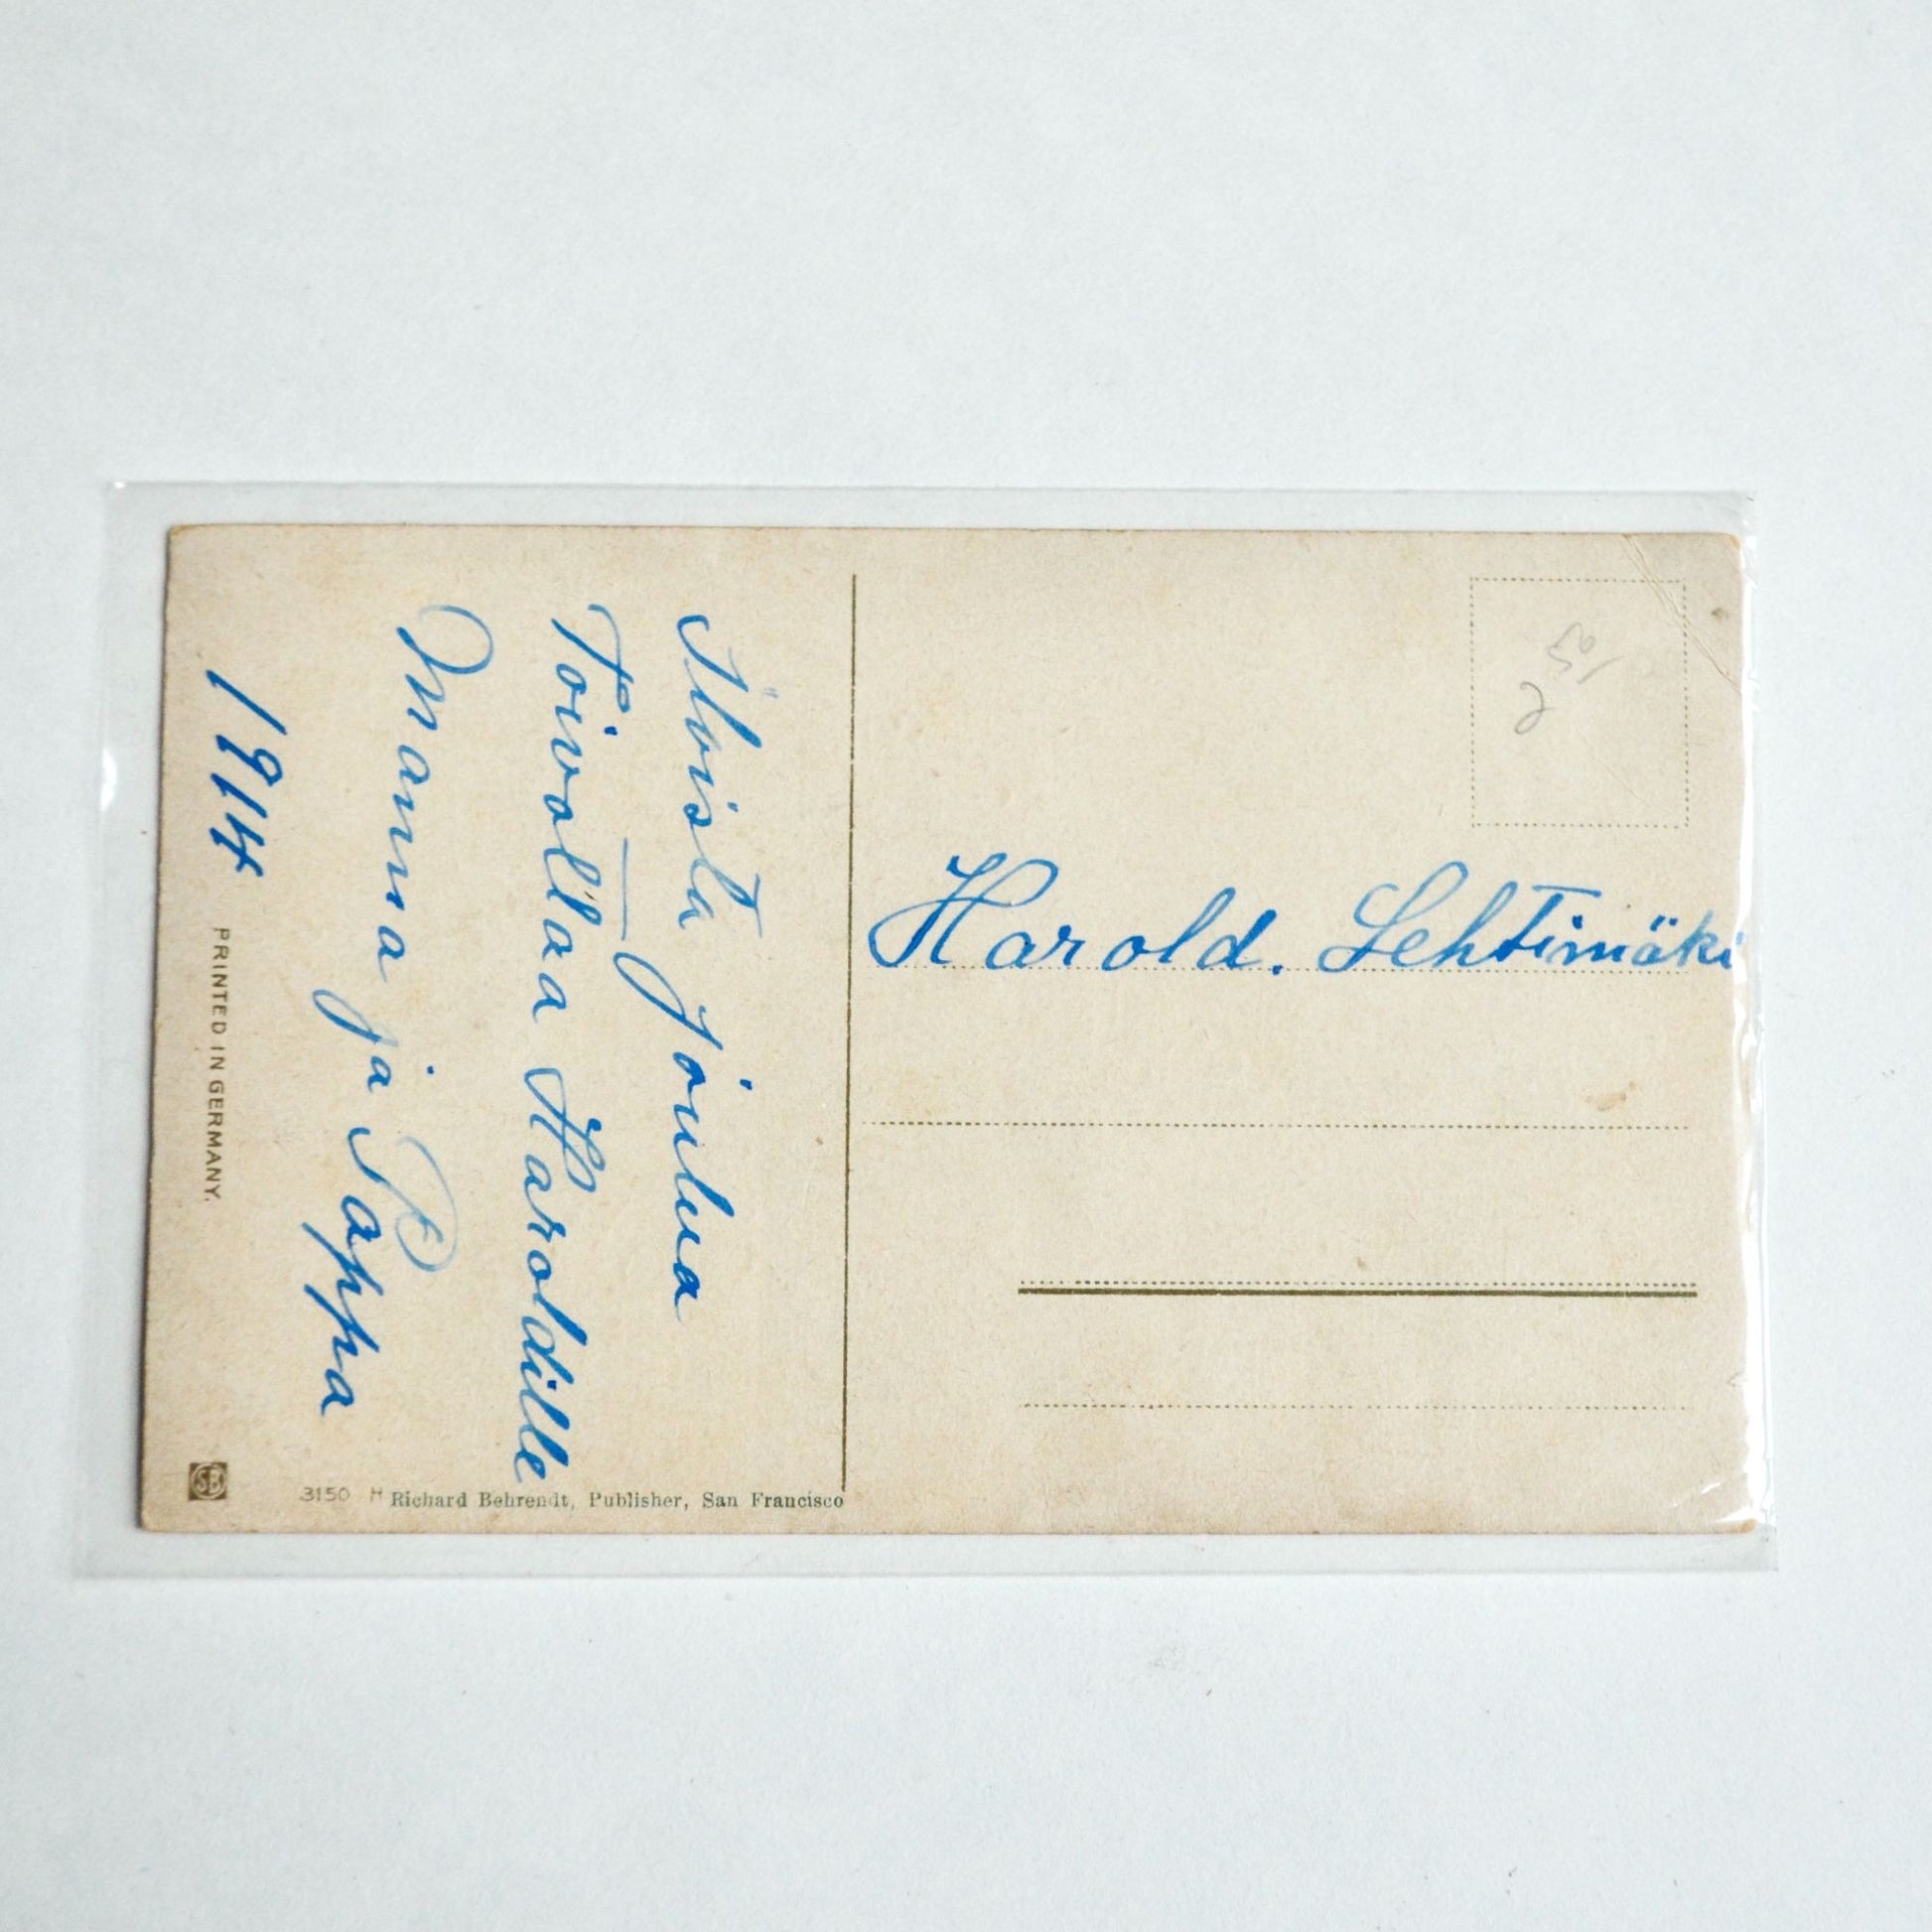 Iloista Joulua
Toivottaa Haroldille
Mamma ja Pappa
1914
Harold. Lehtimäki
PRINTED IN GERMANY.
SB
3150 H Richard Behrendt, Publisher, San Francisco